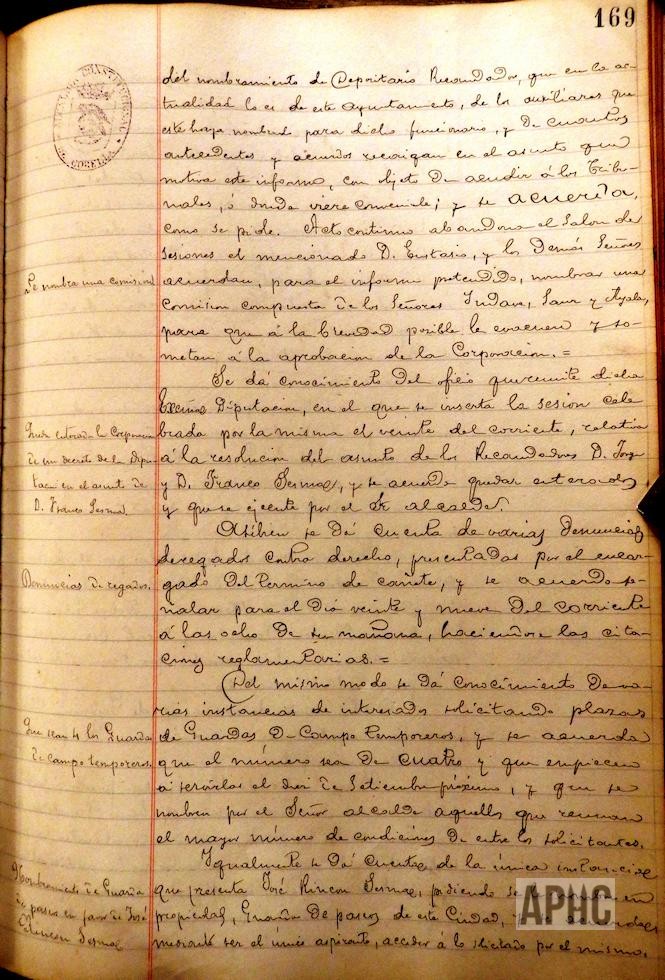 169
del nombramiento de Depositario Recaudador, que en la ac-
tualidad lo es de este Ayuntamiento, de los auxiliares que
este haya nombrado para dicho funcionario, y de cuantos
antecedentes y acuerdos recaigan en el asunto que
motiva este informe, con objeto de acudir á los Tribu-
nales, ó donde viere conveniente; y se acuerda,
como se pide. Acto continuo abandona el Salon de
Sesiones el mencionado D. Eustasio, y los demás Señores
Se nombra una comision
acuerdan, para el informe pretendido, nombrar una
Comision compuesta de los Señores Sanz y Ayala,
para que á la brevedad posible le evacuen y so-
metan á la aprobacion de la Corporacion.=
Se dá conocimiento del oficio que remite dicha
Excma Diputacion, en el que se inserta la sesion cele
Queda enterada la Corporacion
de un decreto de la Dipu-
tacion en el asunto de
D. Franco Sesma.
brada por la misma el veinte del corriente, relativa
á la resolucion del asunto de los Recaudadores D. Jorge
y D. Franco Sesma, y se acuerda quedar enterados
y que se ejecute por el Sr. alcalde.
Asibien se dá cuenta de varias denuncias
de regados contra derecho, presentadas por el encar-
Denuncias de regados.
gado del termino de cañete, y se acuerda se-
ñalar para el dia veinte y nueve del corriente
á las ocho de su mañana, haciendose las cita-
ciones reglamentarias.=
Del mismo modo se dá conocimiento de va-
rias instancias de interesados solicitando plazas
Que sean 4 los Guardas
de campo temporeros.
de Guardas de Campo temporeros, y se acuerda
que el número sea de cuatro y que empiecen
á servirlas el diez de Setiembre próximo, y que se
nombren por el Señor alcalde aquellos que reunan
el mayor número de condiciones de entre los solicitantes.
Igualmente se dá cuenta de la única instancia
Nombramiento de Guarda
de paseos en favor de José
Rincon Sesma
que presenta José Rincon Sesma, pidiendo se le nombre en
propiedad, Guarda de paseos de este Ciudad, y se acuerda
mediante ser el único aspirante, acceder á lo solicitado por el mismo.
APHC